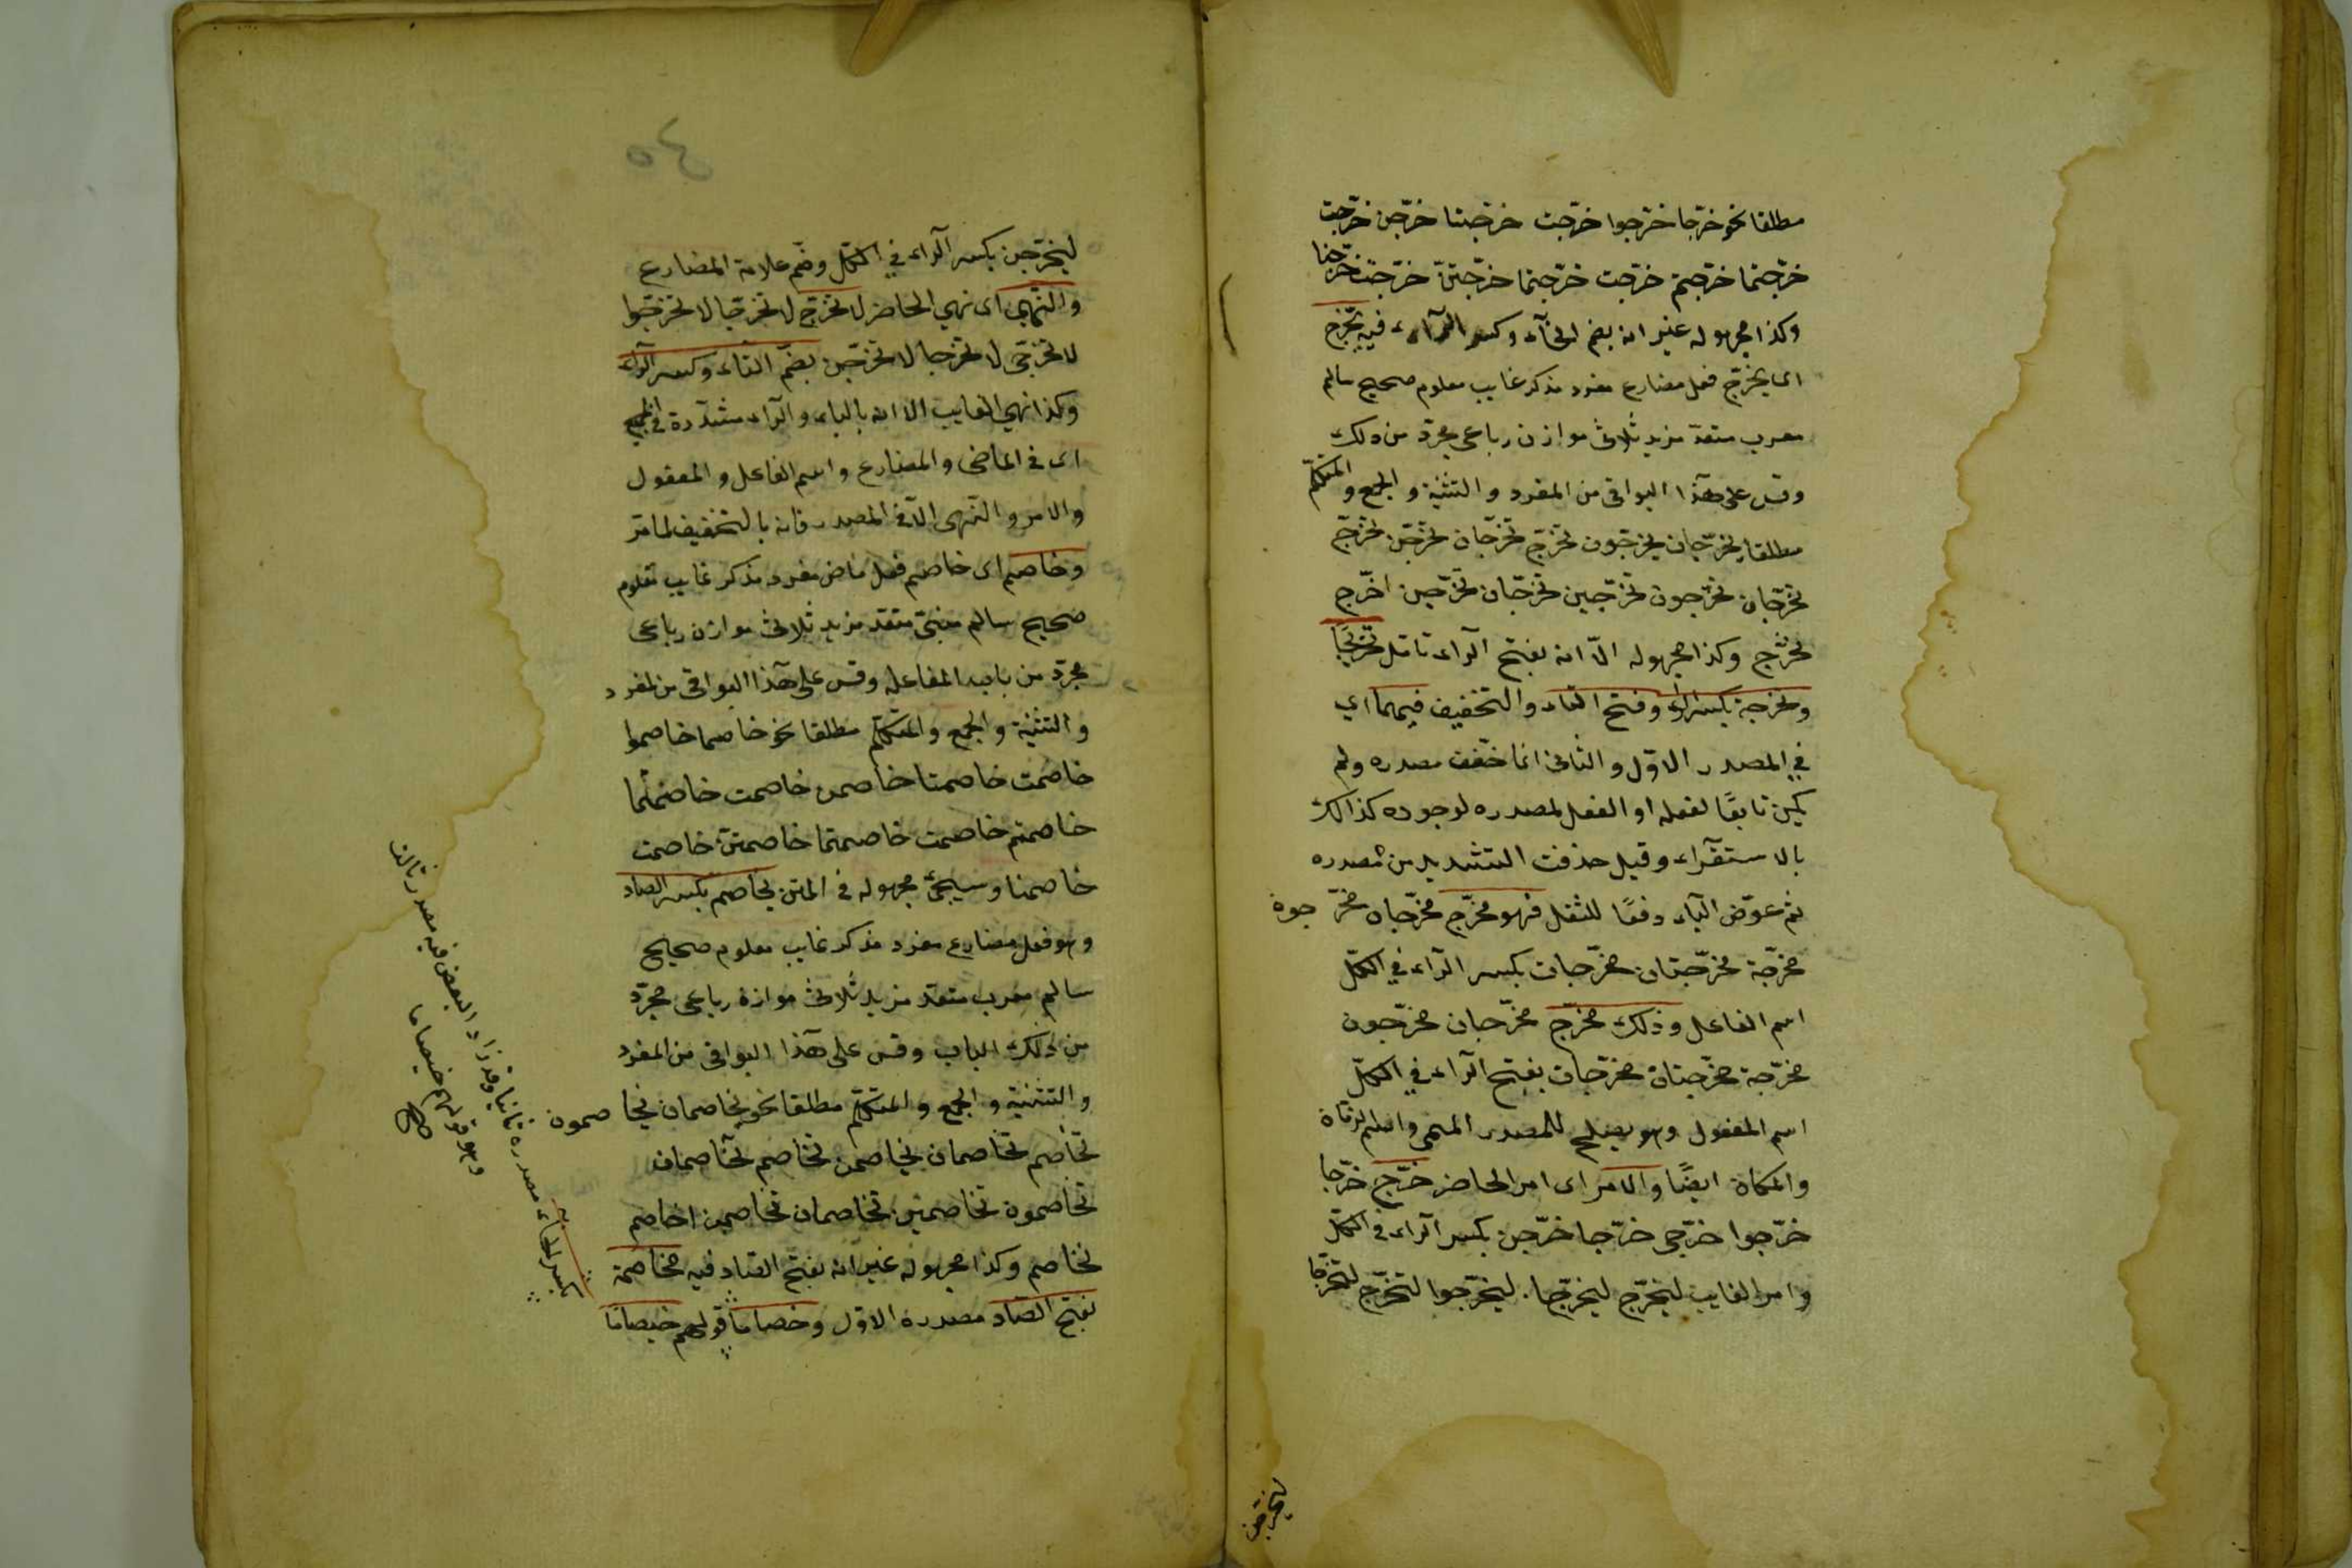 مطلقا نحو خرّجا خرّجوا خرّجت خرّجتا خرّجن خرّجت
خرّجتما خرّجتم خرّجت خرّجتما خرّجتنّ خرّجت خرّجنا
وكذا مجهوله غير انه بضم الخآء وكسر الرآء فيه يخرّج
اى يخرّج فعل مضارع مفرد مذكر غايب معلوم صحيح سالم
معرب متعد مزيد ثلاثى موازن رباعى مجرّد من ذلك
وقس على هذا البواقى من المفرد والتثنية والجمع والمتكلّم
مطلقا يخرّجان يخرّجون تخرّج تخرّجان يخرّجن تخرّج
تخرّجان تخرّجون تخرّجين تخرّجان تخرّجن اخرّج
نخرّج وكذا مجهوله الّا انه بفتح الرآء تامّل تخريجًا
وتخرجة بكسر الراء وفتح التاء والتخفيف فيهما اي
في المصدر الاوّل والثانى انما خفّف مصدره ولم
يكن تابعًا لفعله او الفعل لمصدره لوجوده كذالك
بالاستقرآء وقيل حذفت التشديد من مصدره
ثم عوّض اليآء دفعًا للثقل فهو مخرّج مخرّجان مخرّجون
مخرّجة مخرّجتان مخرّجات بكسر الرآء في الكلّ
اسم الفاعل وذلك مخرّج مخرّجان مخرّجون
مخرّجة مخرّجتان مخرّجات بفتح الرآء في الكلّ
اسم المفعول وهو يصلح للمصدر الميمى واسم الزمان
والمكان ايضًا والامر اى امر الحاضر خرّج خرّجا
خرّجوا خرّجى خرّجا خرّجن بكسر الرآء فى الكلّ
وامر الغايب ليخرّج ليخرّجا ليخرّجوا لتخرّج لتخرّجا
ليخرّجن
٥٤
ليخرّجن بكسر الرآء في الكلّ وضم علامة المضارع
والنّهي اى نهي الحاضر لا تخرّج لا تخرّجا لا تخرّجوا
لا تخرّجى لا تخرّجا لا تخرّجن بضمّ التآء وكسر الرآء
وكذا نهي الغايب الا انه بالياء والرآء مشدّدة في الجميع
اى فى الماضى والمضارع واسم الفاعل والمفعول
والامر والنّهى الّا فى المصدر فانه بالتخفيف لما مرّ
وخاصم اى خاصم فعل ماض مفرد مذكر غايب معلوم
صحيح سالم مبنىّ متعد مزيد ثلاثى موازن رباعى
مجرّد من باب المفاعلة وقس على هذا البواقى من المفرد
والتثنية والجمع والمتكلّم مطلقا نحو خاصما خاصموا
خاصمت خاصمتا خاصمن خاصمت خاصمتما
خاصمتم خاصمت خاصمتما خاصمتنّ خاصمت
خاصمنا وسيجئ مجهوله فى المتن يخاصم بكسر الصاد
وهو فعل مضارع مفرد مذكر غايب معلوم صحيح
سالم معرب متعد مزيد ثلاثى موازن رباعى مجرّد
من ذلك الباب وقس على هذا البواقى من المفرد
والتثنية والجمع والمتكلّم مطلقا نحو يخاصمان يخاصمون
تخاصم تخاصمان يخاصمن تخاصم تخاصمان
تخاصمون تخاصمين تخاصمان تخاصمن اخاصم
نخاصم وكذا مجهوله غير انه بفتح الصاد فيه مخاصمة
بفتح الصّاد مصدره الاوّل وخصامًا قولهم خيصامًا
بكسر الخاء مصدره ثانيا وقد زاد البعض فيه مصدر ثالث
وهو قولهم خيصاما
صح